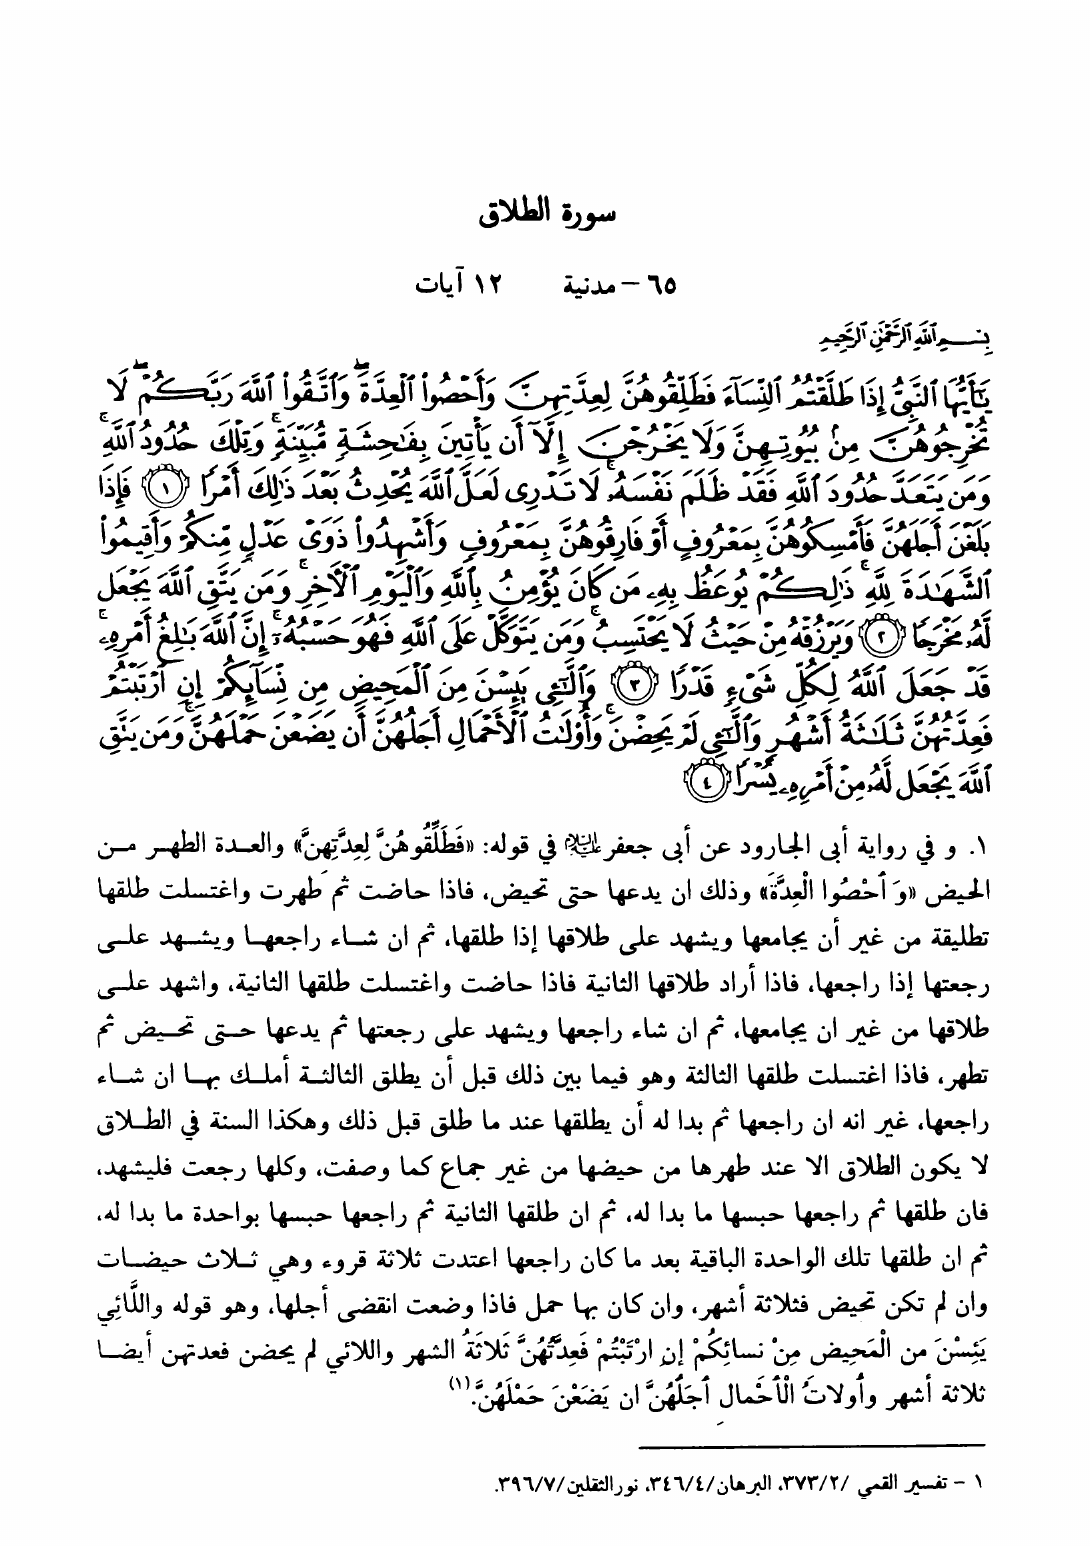 سورة الطلاق
٦٥ – مدنية ١٢ آيات
بِسْمِ ٱللَّهِ ٱلرَّحْمَٰنِ ٱلرَّحِيمِ
يَٰٓأَيُّهَا ٱلنَّبِىُّ إِذَا طَلَّقْتُمُ ٱلنِّسَآءَ فَطَلِّقُوهُنَّ لِعِدَّتِهِنَّ وَأَحْصُوا۟ ٱلْعِدَّةَ ۖ وَٱتَّقُوا۟ ٱللَّهَ رَبَّكُمْ ۖ لَا
تُخْرِجُوهُنَّ مِنۢ بُيُوتِهِنَّ وَلَا يَخْرُجْنَ إِلَّآ أَن يَأْتِينَ بِفَٰحِشَةٍ مُّبَيِّنَةٍ ۚ وَتِلْكَ حُدُودُ ٱللَّهِ ۚ
وَمَن يَتَعَدَّ حُدُودَ ٱللَّهِ فَقَدْ ظَلَمَ نَفْسَهُۥ ۚ لَا تَدْرِى لَعَلَّ ٱللَّهَ يُحْدِثُ بَعْدَ ذَٰلِكَ أَمْرًا ١ فَإِذَا
بَلَغْنَ أَجَلَهُنَّ فَأَمْسِكُوهُنَّ بِمَعْرُوفٍ أَوْ فَارِقُوهُنَّ بِمَعْرُوفٍ وَأَشْهِدُوا۟ ذَوَىْ عَدْلٍ مِّنكُمْ وَأَقِيمُوا۟
ٱلشَّهَٰدَةَ لِلَّهِ ۚ ذَٰلِكُمْ يُوعَظُ بِهِۦ مَن كَانَ يُؤْمِنُ بِٱللَّهِ وَٱلْيَوْمِ ٱلْأَخِرِ ۚ وَمَن يَتَّقِ ٱللَّهَ يَجْعَل
لَّهُۥ مَخْرَجًا ٢ وَيَرْزُقْهُ مِنْ حَيْثُ لَا يَحْتَسِبُ ۚ وَمَن يَتَوَكَّلْ عَلَى ٱللَّهِ فَهُوَ حَسْبُهُۥٓ ۚ إِنَّ ٱللَّهَ بَٰلِغُ أَمْرِهِۦ ۚ
قَدْ جَعَلَ ٱللَّهُ لِكُلِّ شَىْءٍ قَدْرًا ٣ وَٱلَّٰٓـِٔى يَئِسْنَ مِنَ ٱلْمَحِيضِ مِن نِّسَآئِكُمْ إِنِ ٱرْتَبْتُمْ
فَعِدَّتُهُنَّ ثَلَٰثَةُ أَشْهُرٍ وَٱلَّٰٓـِٔى لَمْ يَحِضْنَ ۚ وَأُو۟لَٰتُ ٱلْأَحْمَالِ أَجَلُهُنَّ أَن يَضَعْنَ حَمْلَهُنَّ ۚ وَمَن يَتَّقِ
ٱللَّهَ يَجْعَل لَّهُۥ مِنْ أَمْرِهِۦ يُسْرًا ٤
١. و في رواية أبى الجارود عن أبى جعفر عليه السلام في قوله: «فَطَلِّقُوهُنَّ لِعِدَّتِهِنَّ» والعدة الطهر من
الحيض «وَ أَحْصُوا الْعِدَّةَ» وذلك ان يدعها حتى تحيض، فاذا حاضت ثم طهرت واغتسلت طلقها
تطليقة من غير أن يجامعها ويشهد على طلاقها إذا طلقها، ثم ان شاء راجعها ويشهد على
رجعتها إذا راجعها، فاذا أراد طلاقها الثانية فاذا حاضت واغتسلت طلقها الثانية، واشهد على
طلاقها من غير ان يجامعها، ثم ان شاء راجعها ويشهد على رجعتها ثم يدعها حتى تحيض ثم
تطهر، فاذا اغتسلت طلقها الثالثة وهو فيما بين ذلك قبل أن يطلق الثالثة أملك بها ان شاء
راجعها، غير انه ان راجعها ثم بدا له أن يطلقها عند ما طلق قبل ذلك وهكذا السنة في الطلاق
لا يكون الطلاق الا عند طهرها من حيضها من غير جماع كما وصفت، وكلها رجعت فليشهد،
فان طلقها ثم راجعها حبسها ما بدا له، ثم ان طلقها الثانية ثم راجعها حبسها بواحدة ما بدا له،
ثم ان طلقها تلك الواحدة الباقية بعد ما كان راجعها اعتدت ثلاثة قروء وهي ثلاث حيضات
وان لم تكن تحيض فثلاثة أشهر، وان كان بها حمل فاذا وضعت انقضى أجلها، وهو قوله واللَّائِي
يَئِسْنَ من الْمَحِيض مِنْ نسائِكُمْ إن ارْتَبْتُمْ فَعِدَّتُهُنَّ ثَلَاثَةُ الشهر واللائي لم يحضن فعدتهن أيضا
ثلاثة أشهر وأولاتُ الْأَحْمال أَجَلُهُنَّ ان يَضَعْنَ حَمْلَهُنَّ.(١)
١ – تفسير القمي /٢/٣٧٣، البرهان/٤/٣٤٦، نورالثقلين/٧/٣٩٦.